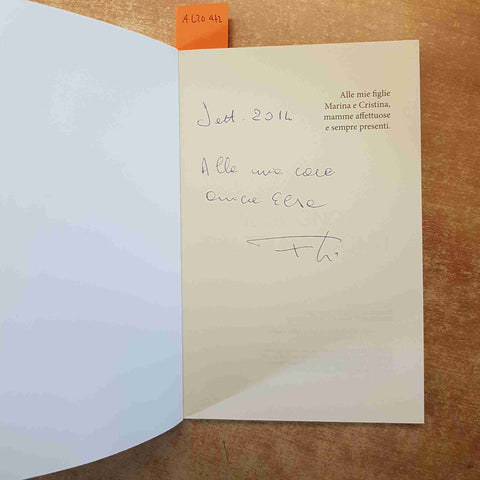 ALTO 942
Alle mie figlie
Marina e Cristina,
mamme affettuose
e sempre presenti.
Sett. 2014
Alla mia cara
amica Elsa